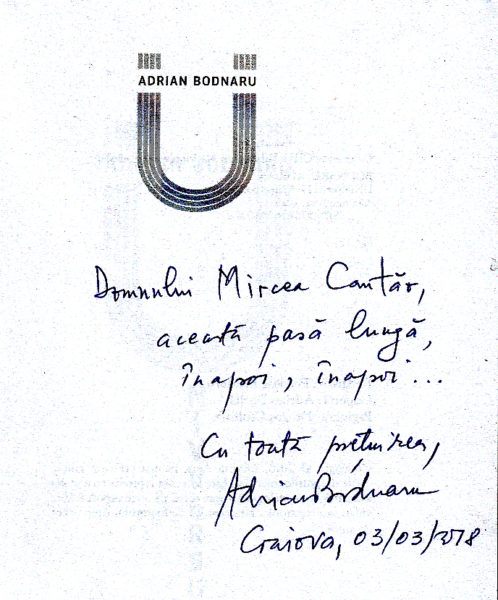 ADRIAN BODNARU
U
Domnului Mircea Cantăr,
această pasă lungă,
înapoi, înapoi...
Cu toată prețuirea,
Adrian Bodnaru
Craiova, 03/03/2018